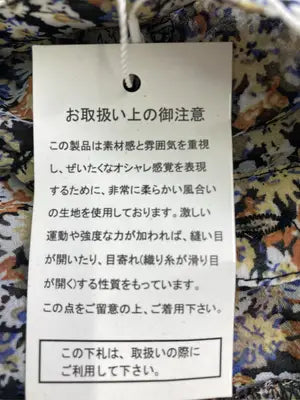 お取扱い上の御注意
この製品は素材感と雰囲気を重視
し、ぜいたくなオシャレ感覚を表現
するために、非常に柔らかい風合い
の生地を使用しております。激しい
運動や強度な力が加われば、縫い目
が開いたり、目寄れ(織り糸が滑り目
が開く)する性質をもっています。
この点をご留意の上、ご着用下さい。
この下札は、取扱いの際に
ご利用して下さい。